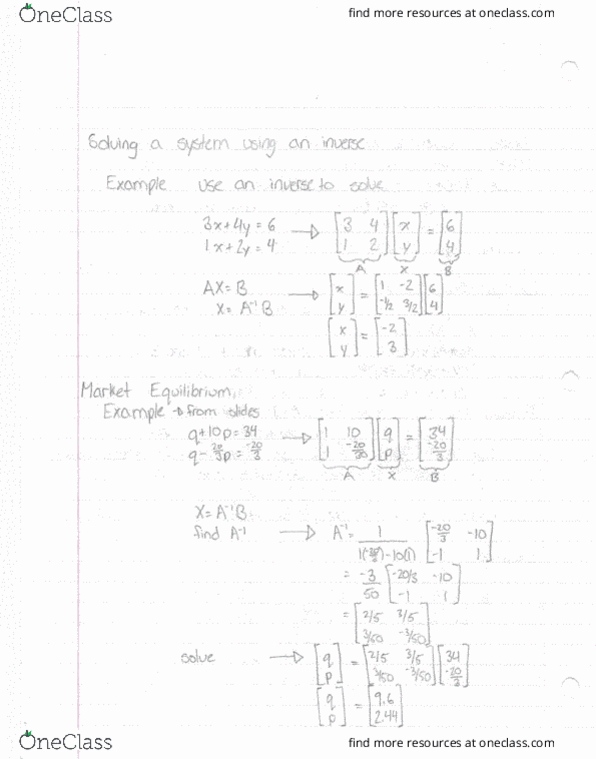 OneClass
find more resources at oneclass.com
Solving a system using an inverse
Example use an inverse to solve
3x+4y=6 → [3 4; 1 2] [x; y] = [6; 4]
1x+2y=4
A X B
AX=B → [x; y] = [1 -2; -1/2 3/2] [6; 4]
X=A⁻¹B
[x; y] = [-2; 3]
Market Equilibrium
Example → from slides
q+10p=34 → [1 10; 1 -20/3] [q; p] = [34; -20/3]
q-20/3p=-20/3
A X B
X=A⁻¹B
find A⁻¹ → A⁻¹= 1/(1(-20/3)-10(1)) [-20/3 -10; -1 1]
= -3/50 [-20/3 -10; -1 1]
= [2/5 3/5; 3/50 -3/50]
solve → [q; p] = [2/5 3/5; 3/50 -3/50] [34; -20/3]
[q; p] = [9.6; 2.44]
OneClass
find more resources at oneclass.com